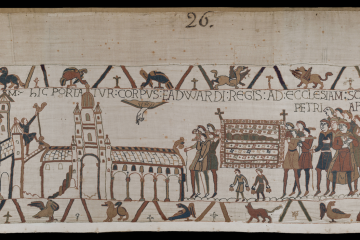 26.
HIC PORTATVR: CORPVS: EADWARDI: REGIS: AD: ECCLESIAM: SCI
PETRI